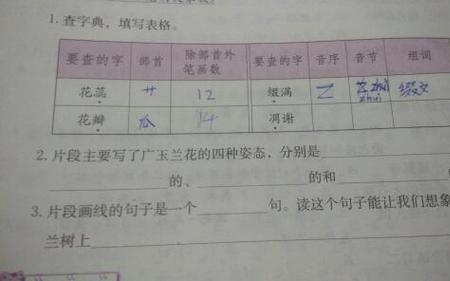 1.查字典，填写表格。
要查的字 部首 除部首外笔画数 要查的字 音序 音节 组词
花蕊 艹 12 缀满 Z zhuì 缀文
花瓣 瓜 14 凋谢
2.片段主要写了广玉兰花的四种姿态，分别是
的、 的和
3.片段画线的句子是一个 句。读这个句子能让我们想象
兰树上